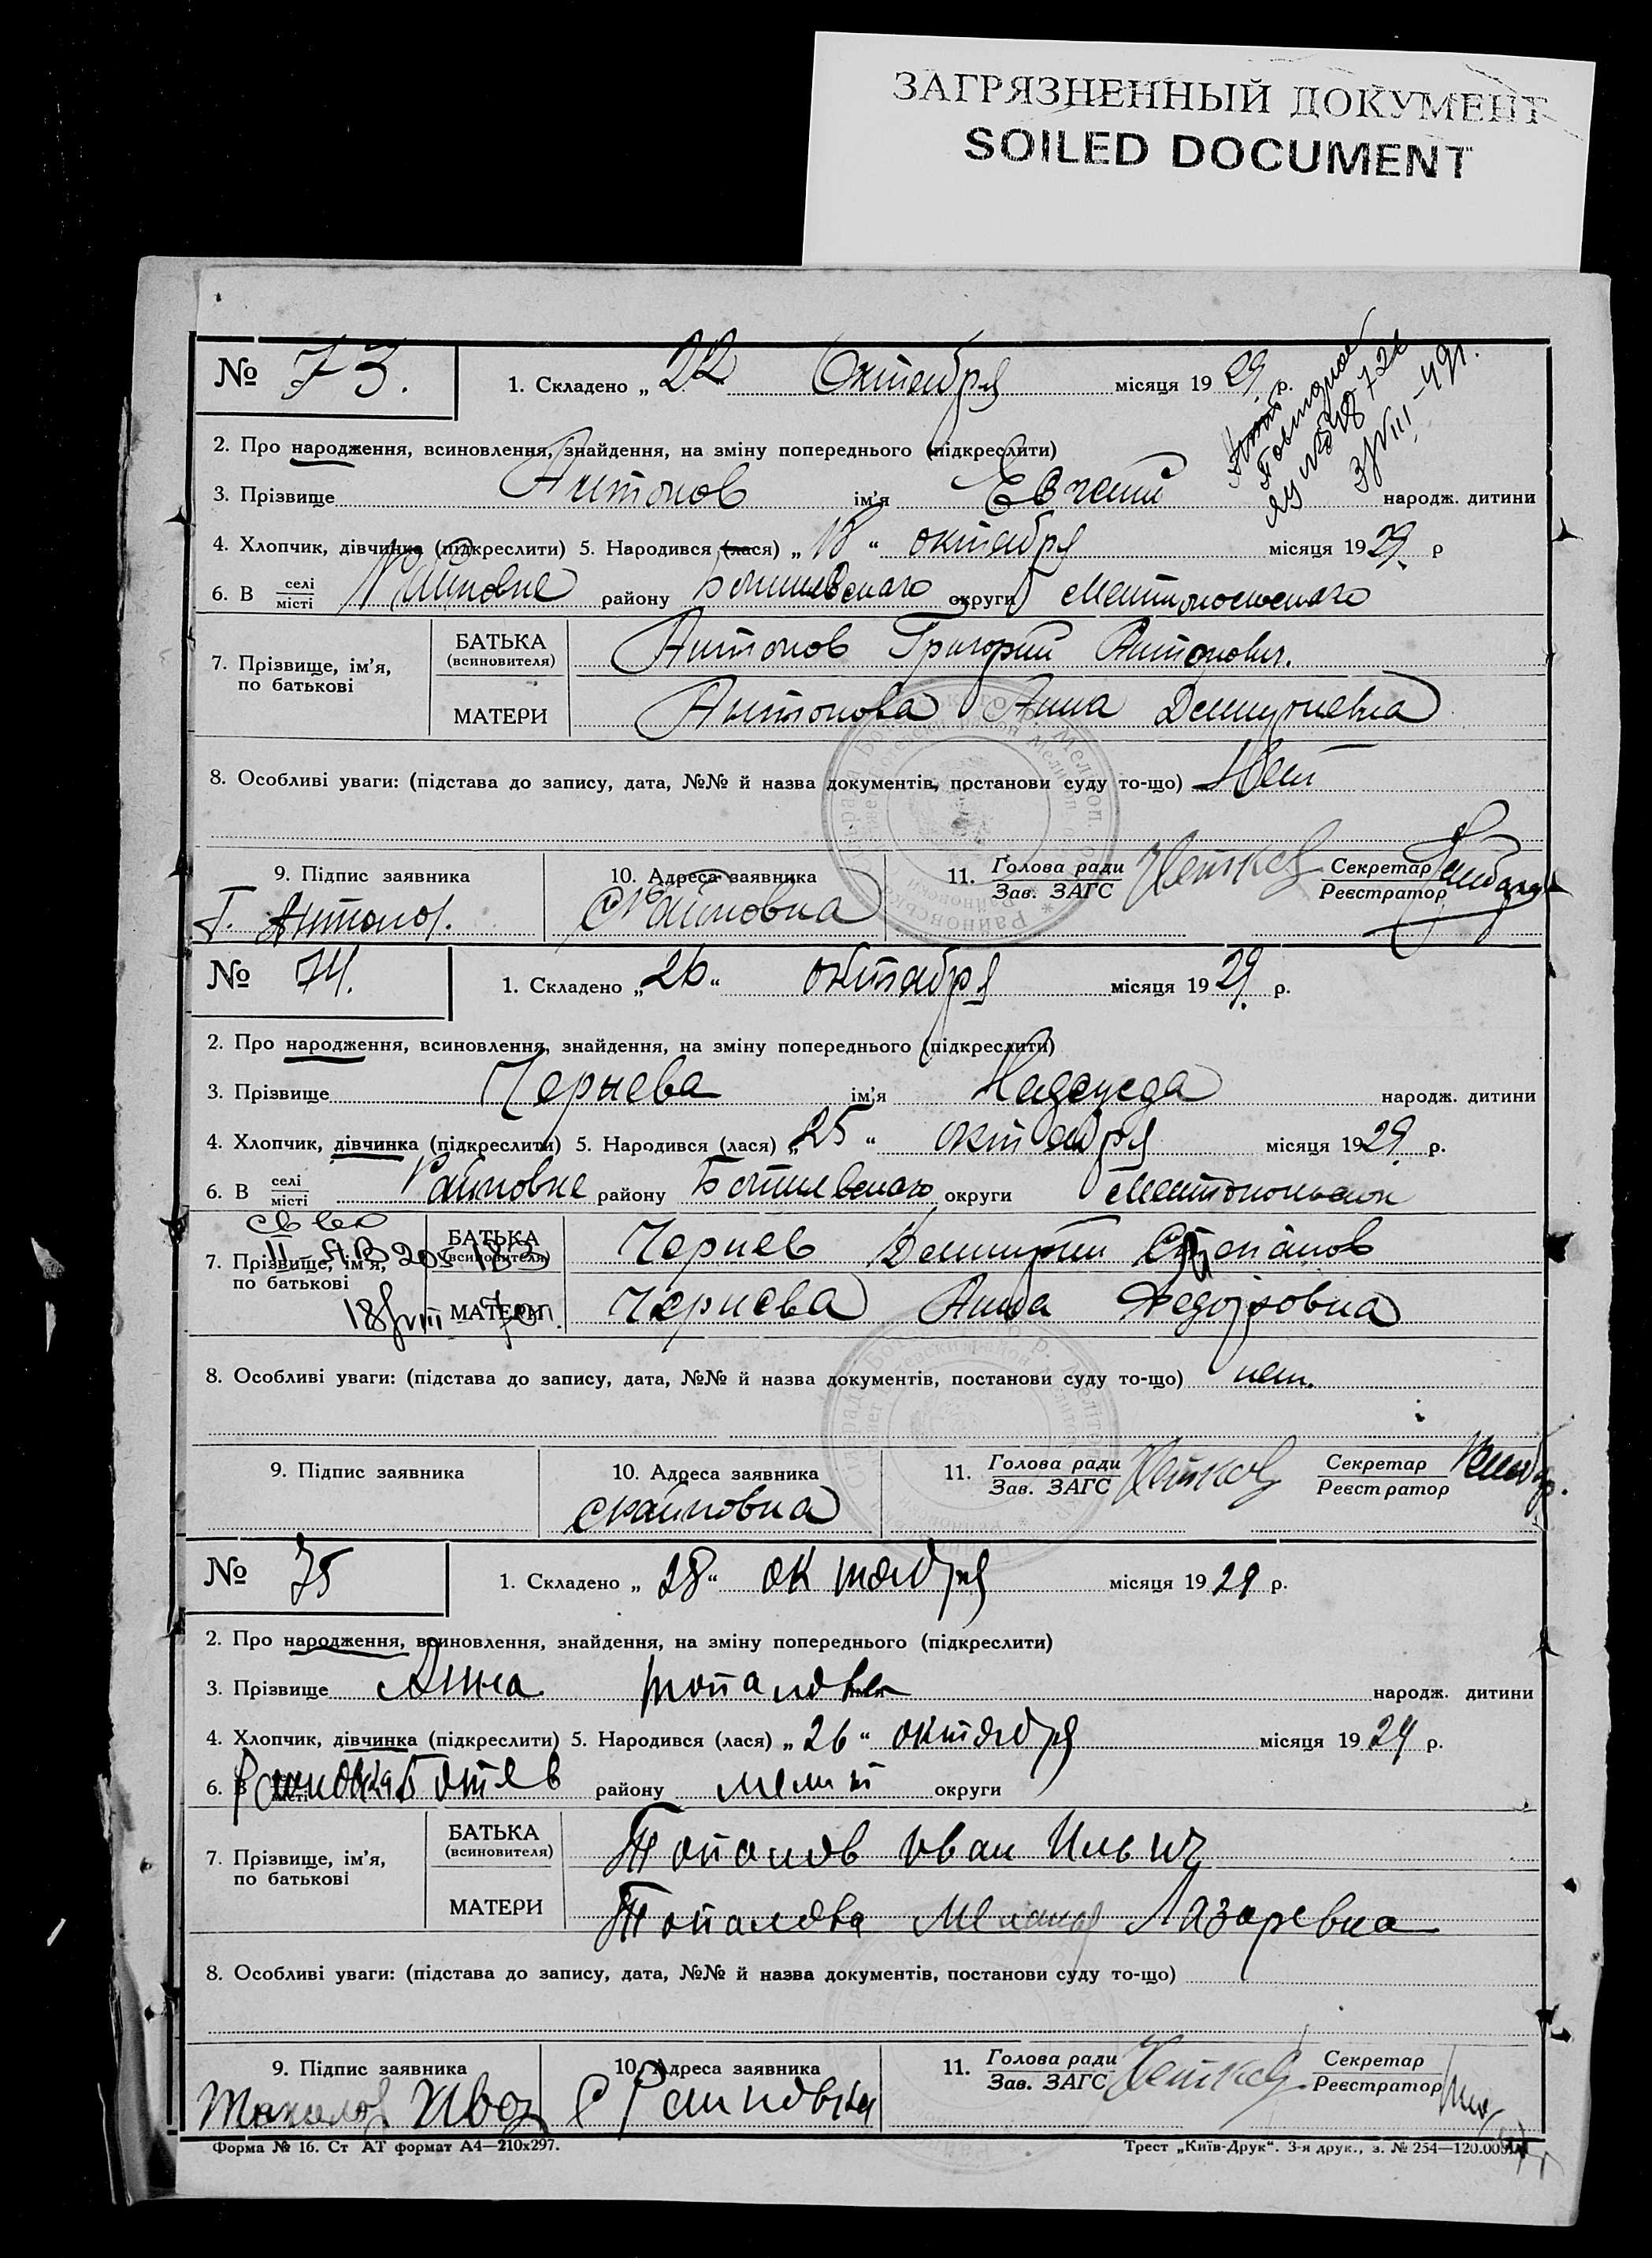 ЗАГРЯЗНЕННЫЙ ДОКУМЕНТ
SOILED DOCUMENT
№ 73. 1. Складено „ 22 Октября місяця 1929. р.
2. Про народження, всиновлення, знайдення, на зміну попереднього (підкреслити)
3. Прізвище Антонов ім'я Евгений народж. дитини
4. Хлопчик, дівчинка (підкреслити) 5. Народився (лася) „ 18 “ октября місяця 1929. р
6. В селі місті Райновке району Ботиевского округи Мелитопольского
7. Прізвище, ім'я, по батькові
БАТЬКА (всиновителя) Антонов Григорий Антонович.
МАТЕРИ Антонова Анна Дмитриевна
8. Особливі уваги: (підстава до запису, дата, №№ й назва документів, постанови суду то-що) Нет
9. Підпис заявника 10. Адреса заявника 11. Голова ради Зав. ЗАГС Секретар Реєстратор
Г. Антонов. с Райновка
№ 74. 1. Складено „ 26 “ октября місяця 1929. р.
2. Про народження, всиновлення, знайдення, на зміну попереднього (підкреслити)
3. Прізвище Чернева ім'я Надежда народж. дитини
4. Хлопчик, дівчинка (підкреслити) 5. Народився (лася) „ 25 “ октября місяця 1929. р.
6. В селі місті Райновке району Ботиевского округи
7. Прізвище, ім'я, по батькові
БАТЬКА (всиновителя) Чернев Дмитрий Степанов
МАТЕРИ Чернева Анна Федоровна
8. Особливі уваги: (підстава до запису, дата, №№ й назва документів, постанови суду то-що) нет.
9. Підпис заявника 10. Адреса заявника 11. Голова ради Зав. ЗАГС Секретар Реєстратор
с Райновка
№ 75 1. Складено „ 28 “ октября місяця 1929 р.
2. Про народження, всиновлення, знайдення, на зміну попереднього (підкреслити)
3. Прізвище Анна топалова народж. дитини
4. Хлопчик, дівчинка (підкреслити) 5. Народився (лася) „ 26 “ октября місяця 1929 р.
6. В Райновка Ботев району мелит округи
7. Прізвище, ім'я, по батькові
БАТЬКА (всиновителя) Топалов иван Ильич
МАТЕРИ Топалова Лазаревна
8. Особливі уваги: (підстава до запису, дата, №№ й назва документів, постанови суду то-що)
9. Підпис заявника 10. Адреса заявника 11. Голова ради Зав. ЗАГС Секретар Реєстратор
с Райновка
Форма № 16. Ст АТ формат А4—210х297. Трест „Київ-Друк“. 3-я друк., з. № 254—120.000